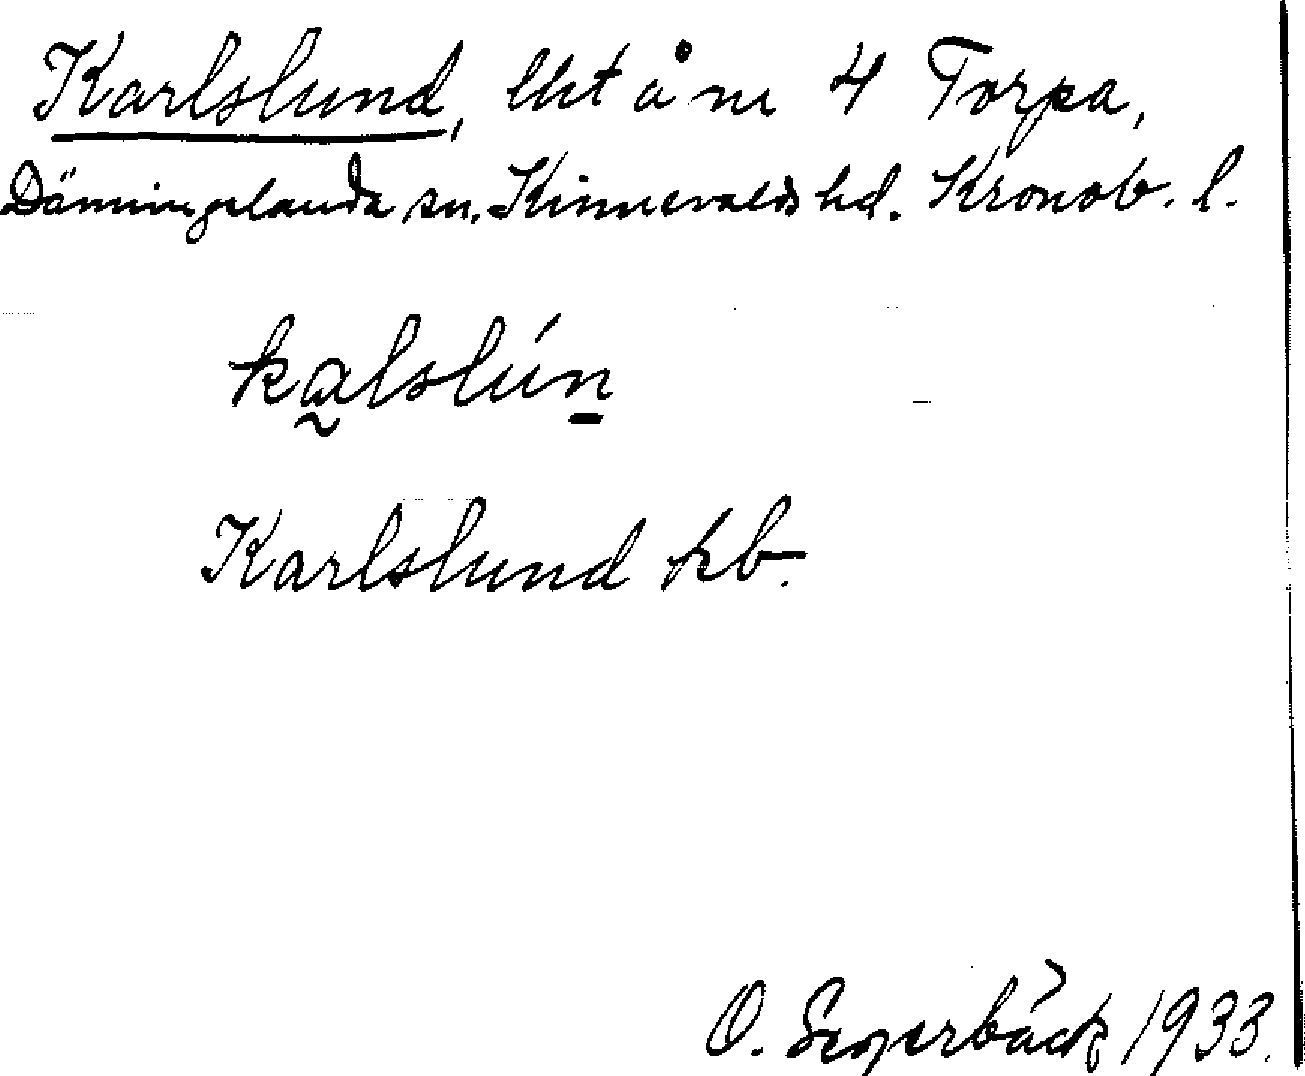 Karlslund, lht å nr 4 Torpa,
Dänningelanda sn. Kinnevalds hd. Kronob. l.
kalslún
Karlslund kb.
O. Segerbäck 1933.